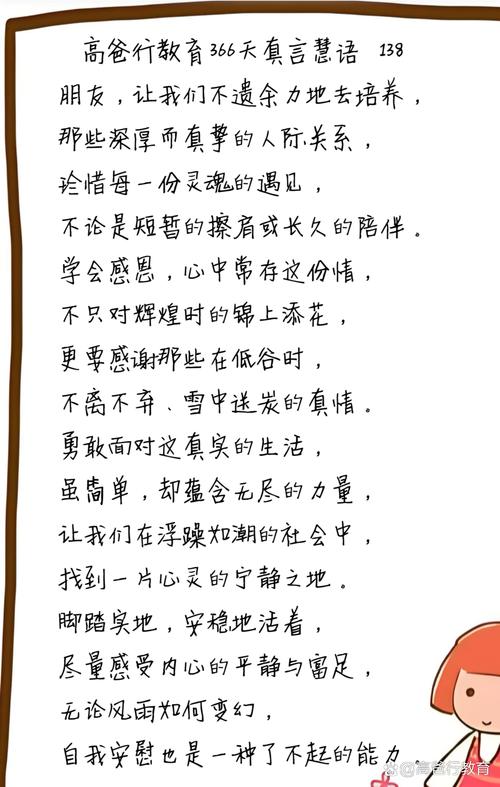 高爸行教育366天真言慧语 138
朋友，让我们不遗余力地去培养，
那些深厚而真挚的人际关系，
珍惜每一份灵魂的遇见，
不论是短暂的擦肩或长久的陪伴。
学会感恩，心中常存这份情，
不只对辉煌时的锦上添花，
更要感谢那些在低谷时，
不离不弃、雪中送炭的真情。
勇敢面对这真实的生活，
虽简单，却蕴含无尽的力量，
让我们在浮躁如潮的社会中，
找到一片心灵的宁静之地。
脚踏实地，安稳地活着，
尽量感受内心的平静与富足，
无论风雨如何变幻，
自我安慰也是一种了不起的能力。
@高爸行教育